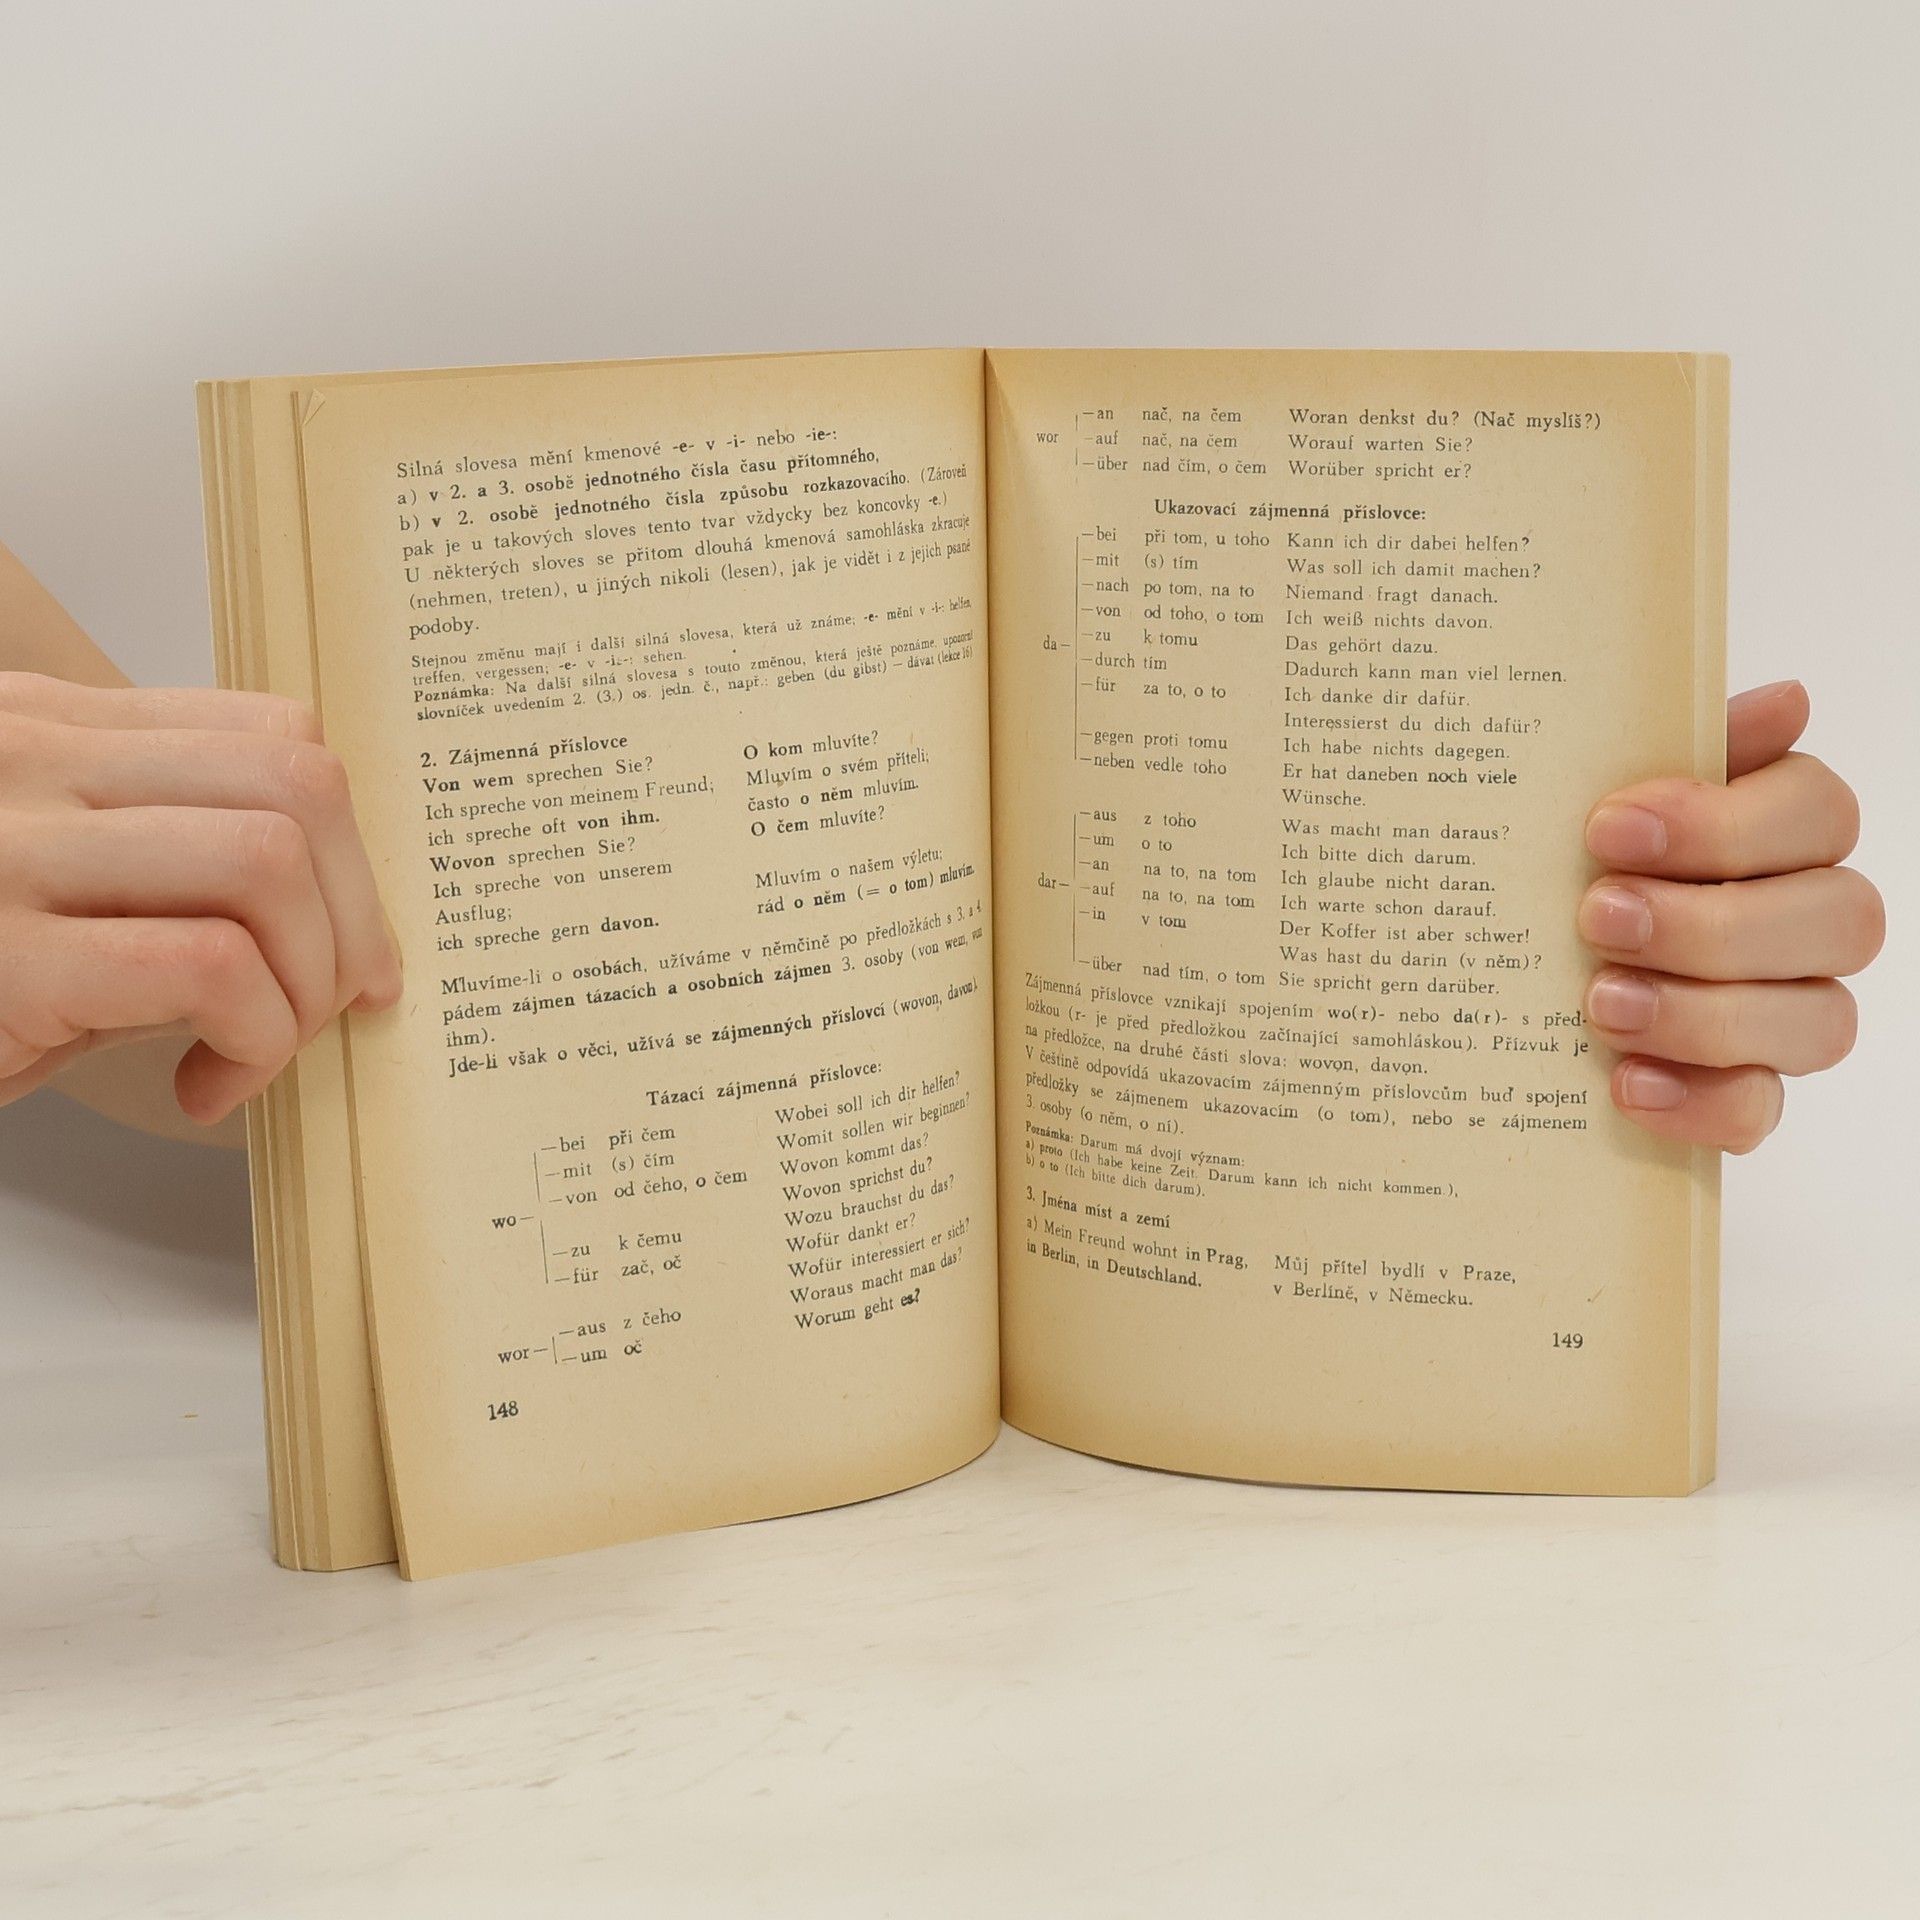 Silná slovesa mění kmenové -e- v -i- nebo -ie-:
a) v 2. a 3. osobě jednotného čísla času přítomného,
b) v 2. osobě jednotného čísla způsobu rozkazovacího. (Zároveň
pak je u takových sloves tento tvar vždycky bez koncovky -e.)
U některých sloves se přitom dlouhá kmenová samohláska zkracuje
(nehmen, treten), u jiných nikoli (lesen), jak je vidět i z jejich psané
podoby.
Stejnou změnu mají i další silná slovesa, která už známe; -e- mění v -i-: helfen,
treffen, vergessen; -e- v -ie-: sehen.
Poznámka: Na další silná slovesa s touto změnou, která ještě poznáme, upozorní
slovníček uvedením 2. (3.) os. jedn. č., např.: geben (du gibst) — dávat (lekce 16)
2. Zájmenná příslovce
Von wem sprechen Sie? O kom mluvíte?
Ich spreche von meinem Freund; Mluvím o svém příteli;
ich spreche oft von ihm. často o něm mluvím.
Wovon sprechen Sie? O čem mluvíte?
Ich spreche von unserem
Ausflug; Mluvím o našem výletu;
ich spreche gern davon. rád o něm (= o tom) mluvím.
Mluvíme-li o osobách, užíváme v němčině po předložkách s 3. a 4.
pádem zájmen tázacích a osobních zájmen 3. osoby (von wem, von
ihm).
Jde-li však o věci, užívá se zájmenných příslovcí (wovon, davon).
Tázací zájmenná příslovce:
—bei při čem Wobei soll ich dir helfen?
—mit (s) čím Womit sollen wir beginnen?
—von od čeho, o čem Wovon kommt das?
wo— Wovon sprichst du?
—zu k čemu Wozu brauchst du das?
—für zač, oč Wofür dankt er?
Wofür interessiert er sich?
—aus z čeho Woraus macht man das?
wor— —um oč Worum geht es?
148
—an nač, na čem Woran denkst du? (Nač myslíš?)
wor —auf nač, na čem Worauf warten Sie?
—über nad čím, o čem Worüber spricht er?
Ukazovací zájmenná příslovce:
—bei při tom, u toho Kann ich dir dabei helfen?
—mit (s) tím Was soll ich damit machen?
—nach po tom, na to Niemand fragt danach.
—von od toho, o tom Ich weiß nichts davon.
da— —zu k tomu Das gehört dazu.
—durch tím Dadurch kann man viel lernen.
—für za to, o to Ich danke dir dafür.
Interessierst du dich dafür?
—gegen proti tomu Ich habe nichts dagegen.
—neben vedle toho Er hat daneben noch viele
Wünsche.
—aus z toho Was macht man daraus?
—um o to Ich bitte dich darum.
—an na to, na tom Ich glaube nicht daran.
dar— —auf na to, na tom Ich warte schon darauf.
—in v tom Der Koffer ist aber schwer!
Was hast du darin (v něm)?
—über nad tím, o tom Sie spricht gern darüber.
Zájmenná příslovce vznikají spojením wo(r)- nebo da(r)- s před-
ložkou (r- je před předložkou začínající samohláskou). Přízvuk je
na předložce, na druhé části slova: wovon, davon.
V češtině odpovídá ukazovacím zájmenným příslovcům buď spojení
předložky se zájmenem ukazovacím (o tom), nebo se zájmenem
3. osoby (o něm, o ní).
Poznámka: Darum má dvojí význam:
a) proto (Ich habe keine Zeit. Darum kann ich nicht kommen.),
b) o to (Ich bitte dich darum).
3. Jména míst a zemí
a) Mein Freund wohnt in Prag, Můj přítel bydlí v Praze,
in Berlin, in Deutschland. v Berlíně, v Německu.
149